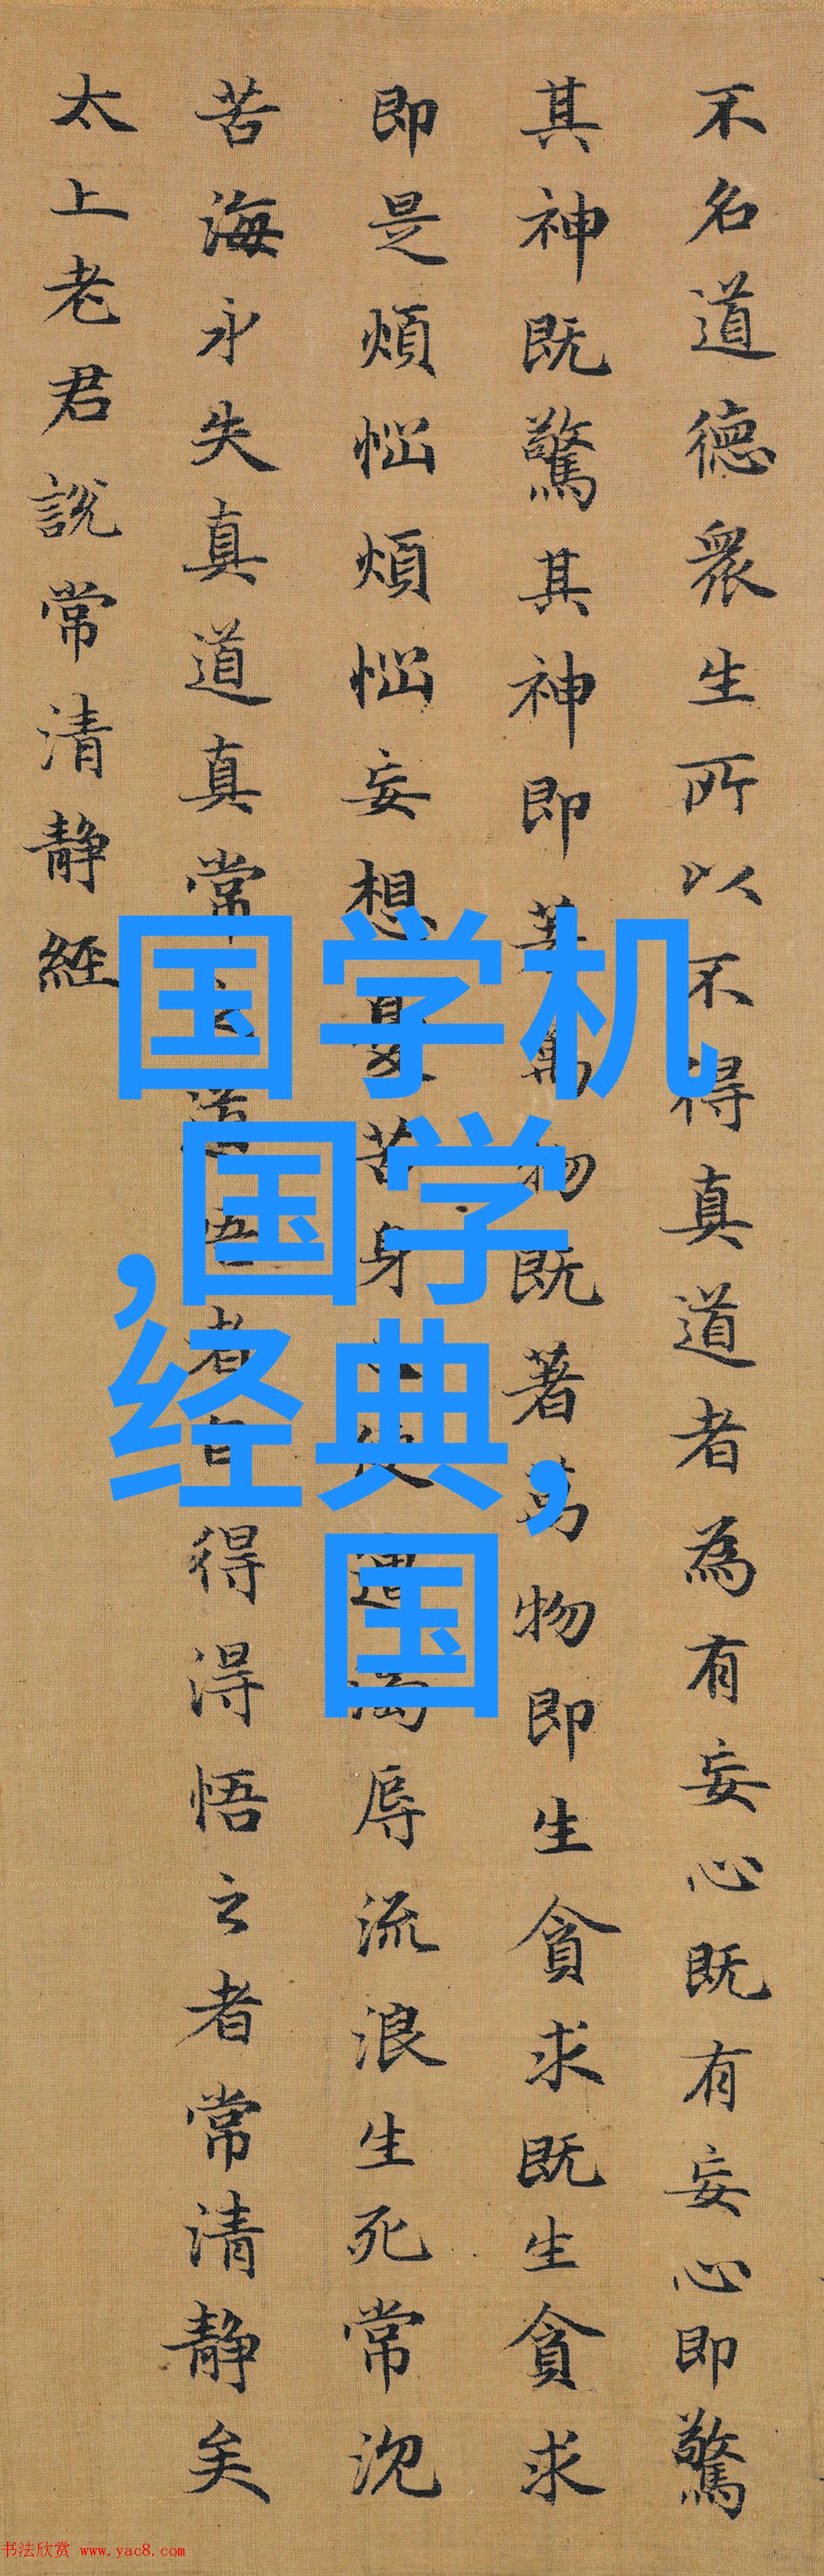 不名道德眾生所以不得真道者為有妄心既有妄心即驚
其神既驚其神即著萬物既著萬物即生貪求既生貪求
即是煩惱煩惱妄想憂苦身心便遭濁辱流浪生死常沉
苦海永失真道真常之道悟者自得淂悟之者常清靜矣
太上老君說常清靜經
国学机
,国学
经典,
国
书法欣赏 www.yac8.com